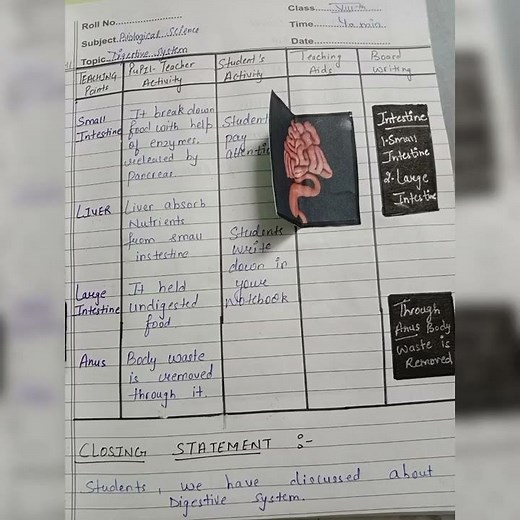 Roll No.
Class. Ninth
Subject. Biological Science
Time.
Topic. Digestive System
Date.
TEACHING Points
PUPIL-Teacher Activity
Student's Activity
Teaching Aids
Board Writing
Small Intestine
It break down
food with help
of enzymes.
released by
pancreas.
Student
pay
Intestine
1-Small
Intestine
2-Large
Intestine
LIVER
Liver absorb
Nutrients
from small
instestine
Students
write
down in
your
notebook
Large
Intestine
It held
undigested
food
Through
Anus Body
Waste is
Removed
Anus
Body waste
is removed
through it.
CLOSING STATEMENT :-
Students, we have discussed about
Digestive System.